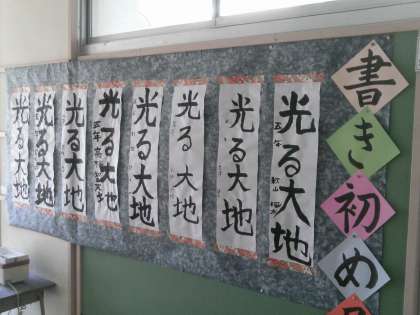 書き初め
光る大地
五年
光る大地
光る大地
光る大地
光る大地
五年
光る大地
光る大地
光る大地